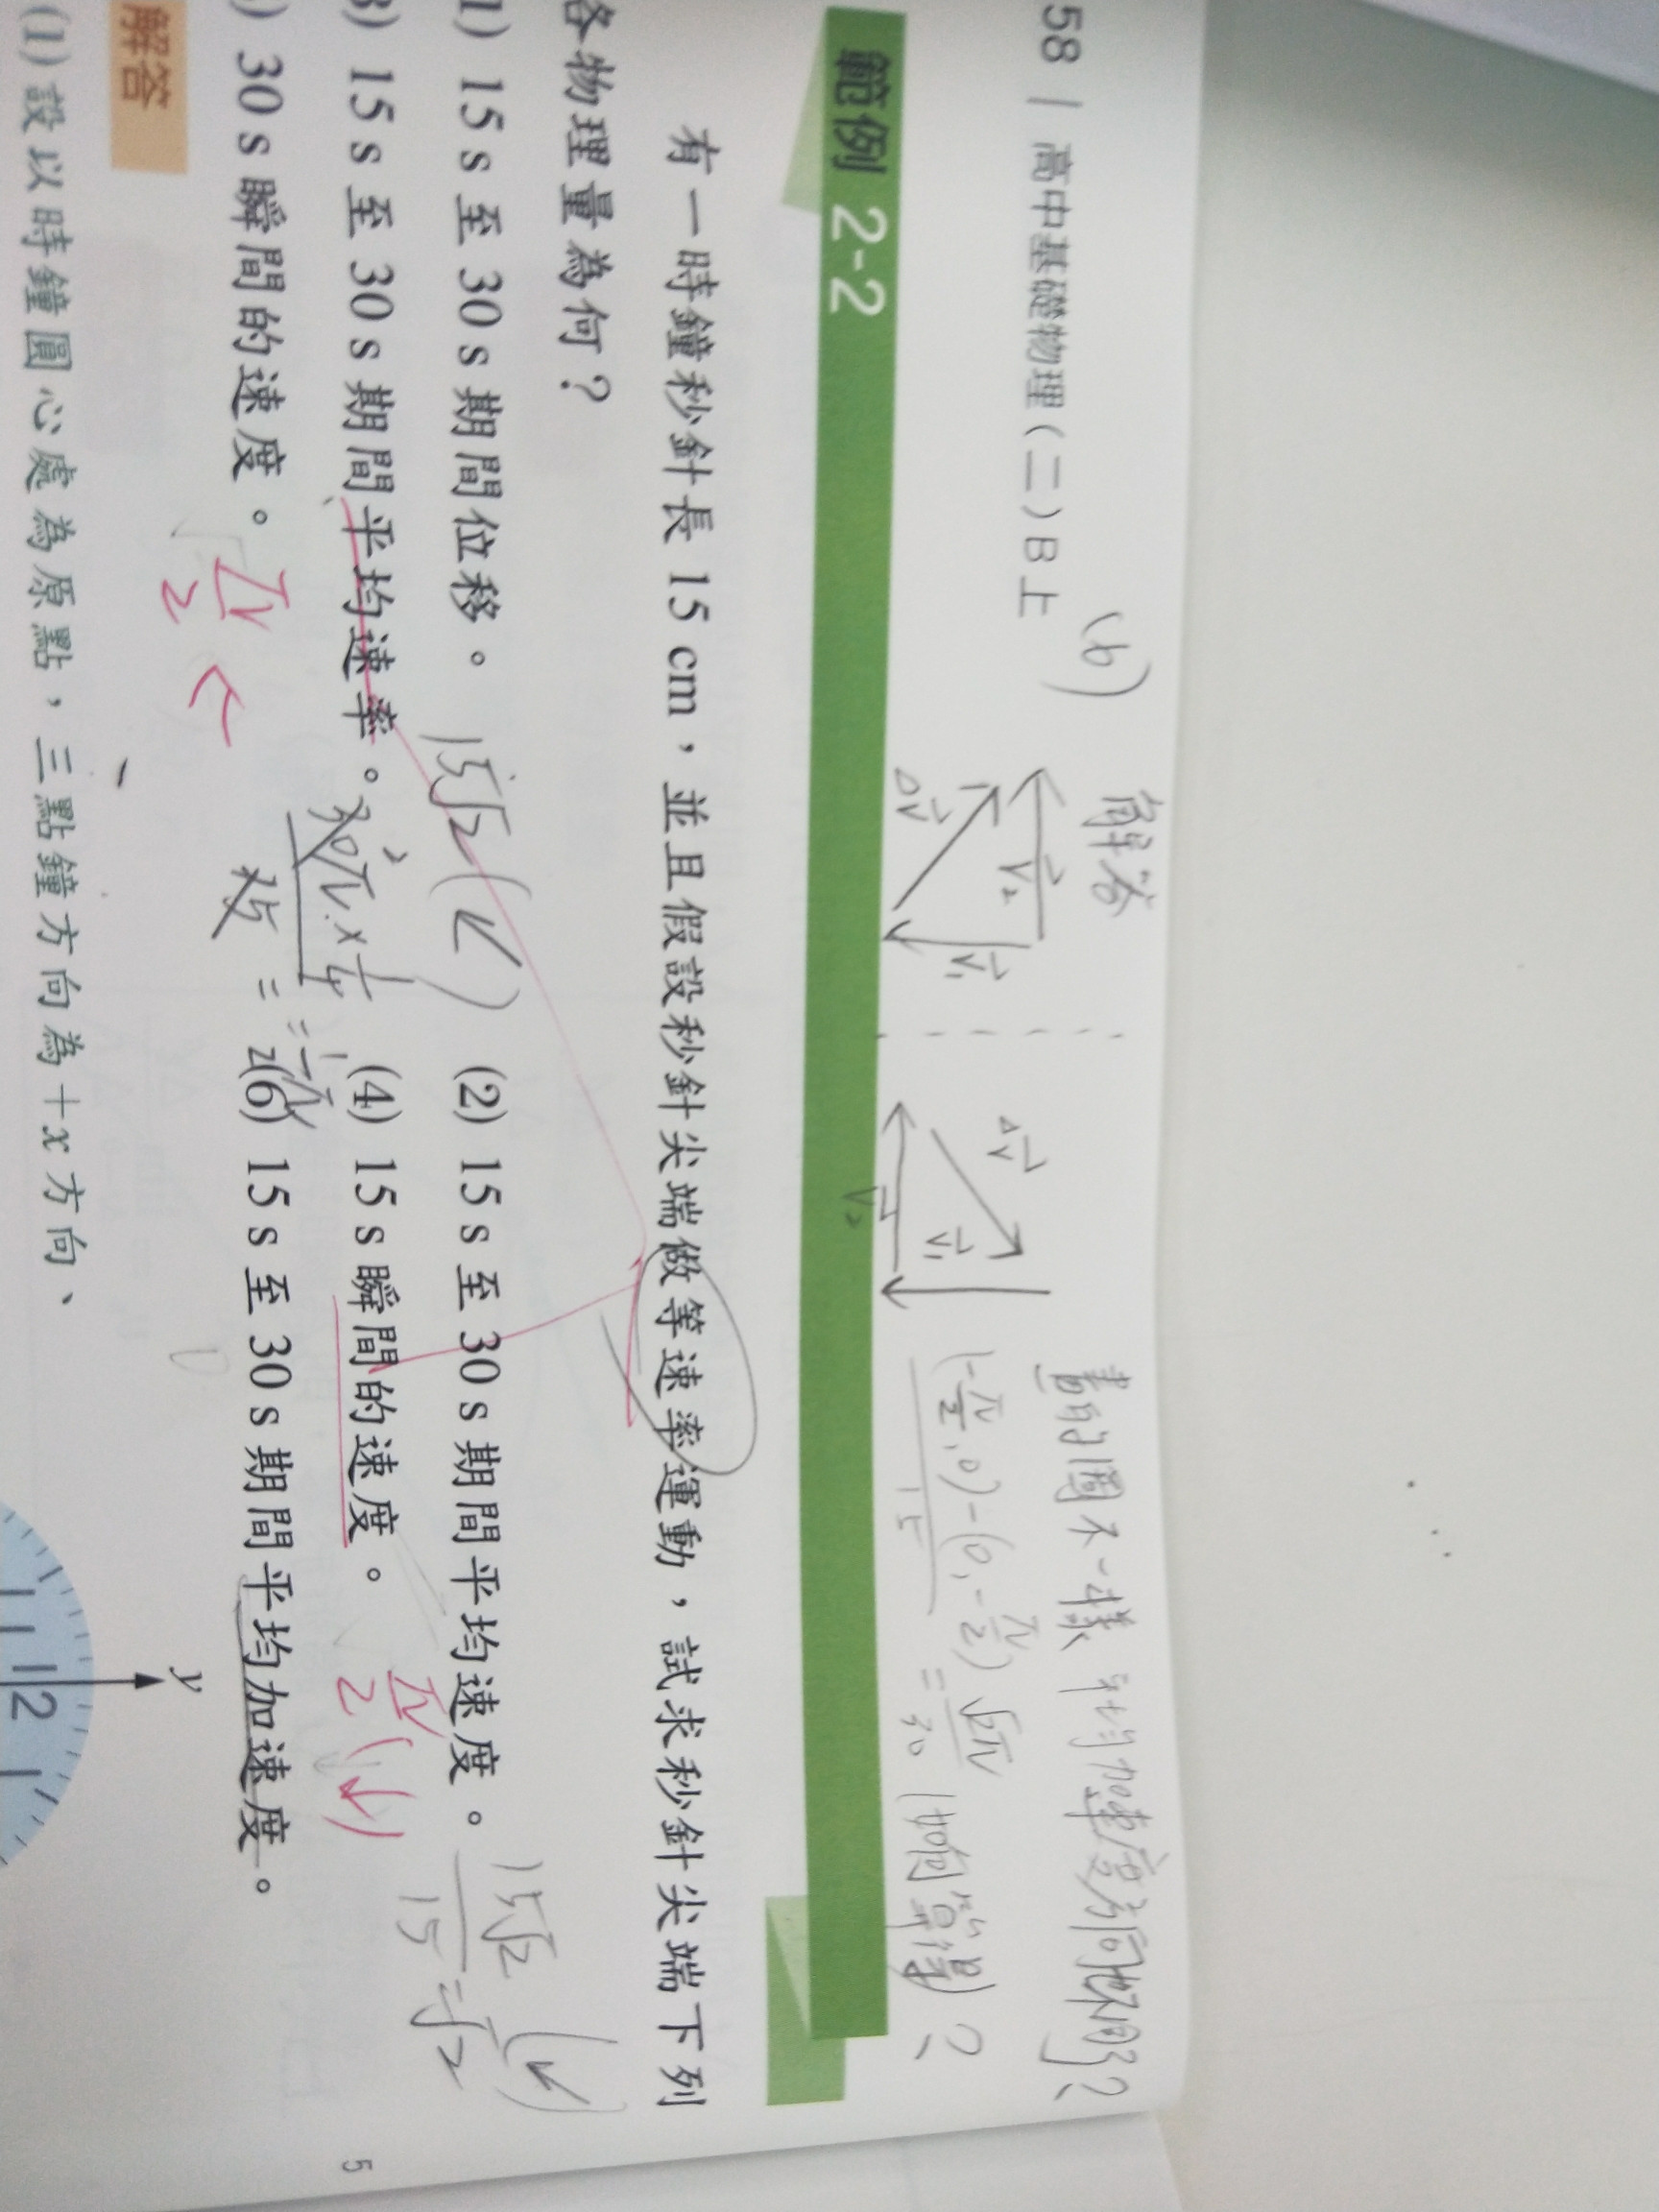 58 | 高中基礎物理(二)B上
(6) 解答
V₂
V₁
ΔV
ΔV
V₁
V₂
書的圖不一樣 平均加速度為何相同？
(-π/2, 0) - (0, -π/2)
15
= √2π/30 (如何算得)？
範例 2-2
有一時鐘秒針長 15 cm，並且假設秒針尖端做等速率運動，試求秒針尖端下列
各物理量為何？
1) 15 s 至 30 s 期間位移。 15√2 (↙)
(2) 15 s 至 30 s 期間平均速度。 15√2/15 = √2 (↙)
3) 15 s 至 30 s 期間平均速率。 30π × 1/4
15 = 1/2π
(4) 15 s 瞬間的速度。 π/2 (↓)
) 30 s 瞬間的速度。 π/2 ←
(6) 15 s 至 30 s 期間平均加速度。
解答
(1) 設以時鐘圓心處為原點，三點鐘方向為＋x方向、
y
12
5